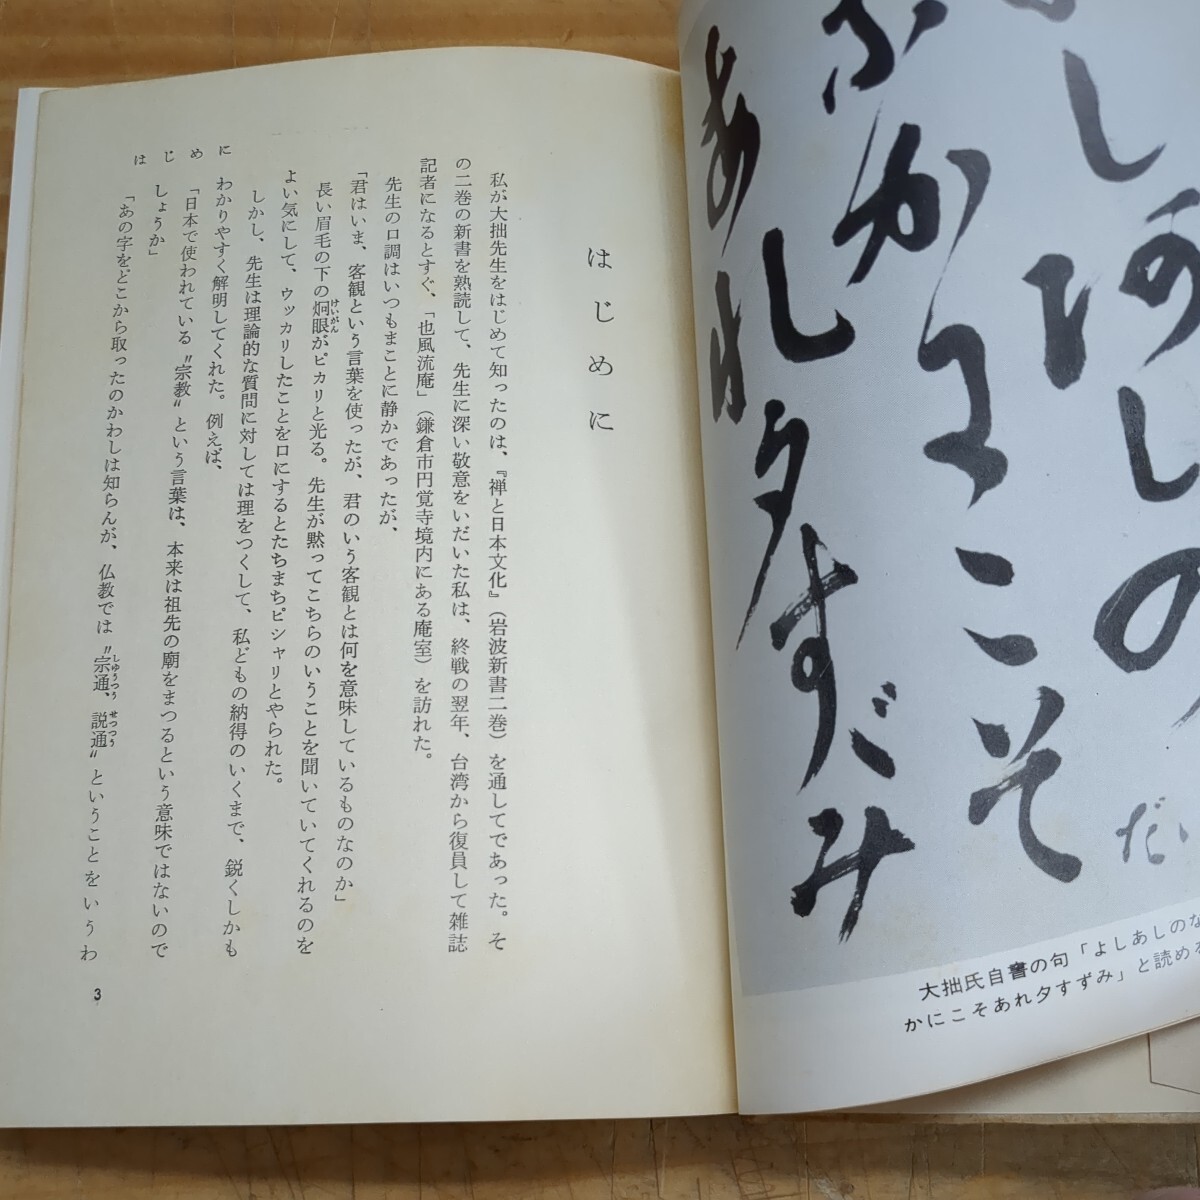 はじめに
私が大拙先生をはじめて知ったのは、『禅と日本文化』（岩波新書二巻）を通してであった。そ
の二巻の新書を熟読して、先生に深い敬意をいだいた私は、終戦の翌年、台湾から復員して雑誌
記者になるとすぐ、「也風流庵」（鎌倉市円覚寺境内にある庵室）を訪れた。
先生の口調はいつもまことに静かであったが、
「君はいま、客観という言葉を使ったが、君のいう客観とは何を意味しているものなのか」
長い眉毛の下の炯眼がピカリと光る。先生が黙ってこちらのいうことを聞いていてくれるのを
けいがん
よい気にして、ウッカリしたことを口にするとたちまちピシャリとやられた。
しかし、先生は理論的な質問に対しては理をつくして、私どもの納得のいくまで、鋭くしかも
わかりやすく解明してくれた。例えば、
「日本で使われている〝宗教〟という言葉は、本来は祖先の廟をまつるという意味ではないので
しょうか」
「あの字をどこから取ったのかわしは知らんが、仏教では〝宗通、説通〟ということをいうわ
しゅうつう せつつう
はじめに
3
しあしの
なかにこそ
あれ夕すずみ
大拙氏自書の句「よしあしのな
かにこそあれ夕すずみ」と読める